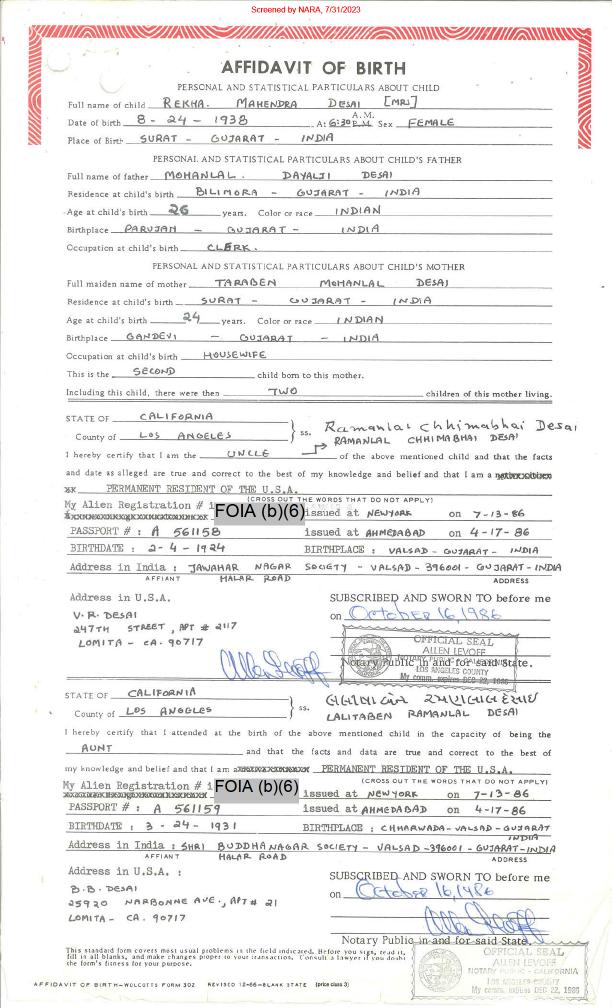 Screened by NARA, 7/31/2023
AFFIDAVIT OF BIRTH
PERSONAL AND STATISTICAL PARTICULARS ABOUT CHILD
Full name of child REKHA. MAHENDRA DESAI [MRS]
Date of birth 8 - 24 - 1938 At 6:30 A.M. P.M. Sex FEMALE
Place of Birth SURAT - GUJARAT - INDIA
PERSONAL AND STATISTICAL PARTICULARS ABOUT CHILD'S FATHER
Full name of father MOHANLAL. DAYALJI DESAI
Residence at child's birth BILIMORA - GUJARAT - INDIA
Age at child's birth 26 years. Color or race INDIAN
Birthplace PARUJAN - GUJARAT - INDIA
Occupation at child's birth CLERK.
PERSONAL AND STATISTICAL PARTICULARS ABOUT CHILD'S MOTHER
Full maiden name of mother TARABEN MOHANLAL DESAI
Residence at child's birth SURAT - GUJARAT - INDIA
Age at child's birth 24 years. Color or race INDIAN
Birthplace GANDEVI - GUJARAT - INDIA
Occupation at child's birth HOUSEWIFE
This is the SECOND child born to this mother.
Including this child, there were then TWO children of this mother living.
STATE OF CALIFORNIA
County of LOS ANGELES ss. Ramanlal Chhimabhai Desai
RAMANLAL CHHIMABHAI DESAI
I hereby certify that I am the UNCLE of the above mentioned child and that the facts
and date as alleged are true and correct to the best of my knowledge and belief and that I am a
PERMANENT RESIDENT OF THE U.S.A.
(CROSS OUT THE WORDS THAT DO NOT APPLY)
My Alien Registration # i FOIA (b)(6) issued at NEWYORK on 7-13-86
PASSPORT # : A 561158 issued at AHMEDABAD on 4-17-86
BIRTHDATE : 2-4-1924 BIRTHPLACE : VALSAD - GUJARAT - INDIA
Address in India : JAWAHAR NAGAR SOCIETY - VALSAD - 396001 - GUJARAT-INDIA
AFFIANT HALAR ROAD ADDRESS
Address in U.S.A. SUBSCRIBED AND SWORN TO before me
V. R. DESAI on October 16, 1986
247TH STREET, APT # 2117
LOMITA - CA. 90717
OFFICIAL SEAL
ALLEN LEVOFF
NOTARY PUBLIC - CALIFORNIA
LOS ANGELES COUNTY
My comm. expires DEC 22, 1986
Notary Public in and for said State.
STATE OF CALIFORNIA
County of LOS ANGELES ss.
LALITABEN RAMANLAL DESAI
I hereby certify that I attended at the birth of the above mentioned child in the capacity of being the
AUNT and that the facts and data are true and correct to the best of
my knowledge and belief and that I am a PERMANENT RESIDENT OF THE U.S.A.
(CROSS OUT THE WORDS THAT DO NOT APPLY)
My Alien Registration # i FOIA (b)(6) issued at NEWYORK on 7-13-86
PASSPORT # : A 561159 issued at AHMEDABAD on 4-17-86
BIRTHDATE : 3-24-1931 BIRTHPLACE : CHHARWADA-VALSAD-GUJARAT
INDIA
Address in India : SHRI BUDDHANAGAR SOCIETY - VALSAD -396001 - GUJARAT-INDIA
AFFIANT HALAR ROAD ADDRESS
Address in U.S.A. : SUBSCRIBED AND SWORN TO before me
B.B. DESAI on October 16, 1986
25920 NARBONNE AVE., APT # 21
LOMITA - CA. 90717
Notary Public in and for said State.
This standard form covers most usual problems in the field indicated. Before you sign, read it,
fill in all blanks, and make changes proper to your transaction. Consult a lawyer if you doubt
the form's fitness for your purpose.
OFFICIAL SEAL
ALLEN LEVOFF
NOTARY PUBLIC - CALIFORNIA
LOS ANGELES COUNTY
My comm. expires DEC 22, 1986
AFFIDAVIT OF BIRTH—WOLCOTTS FORM 302 REVISED 12-66—BLANK STATE (price class 3)